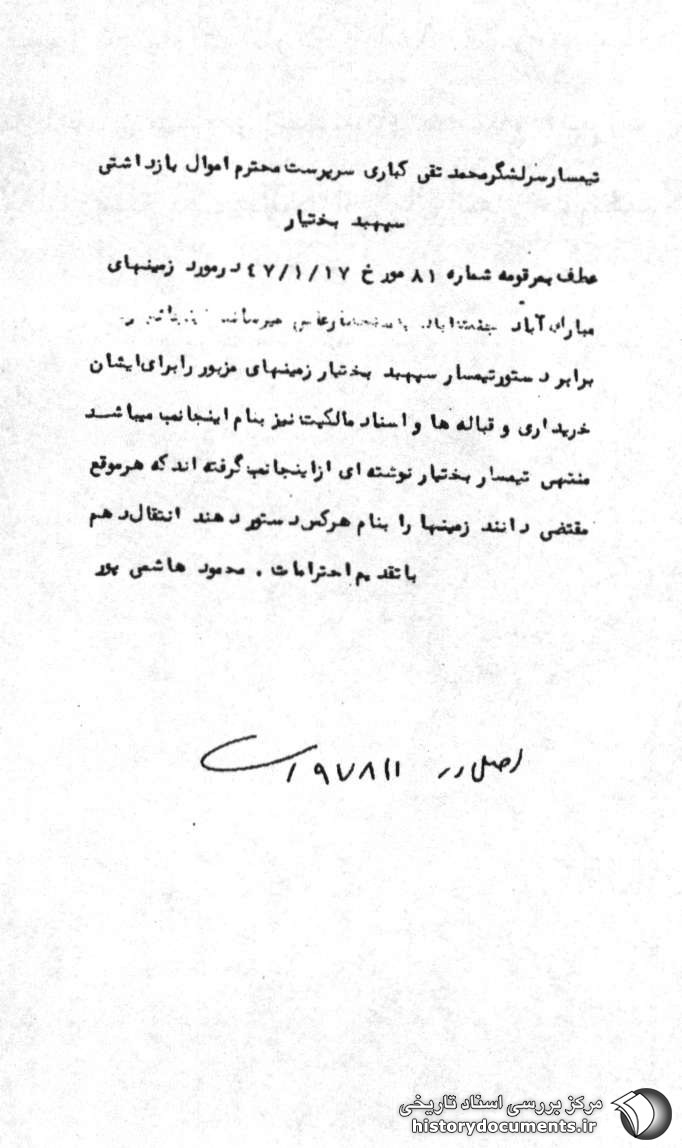 تیمسار سرلشگر محمد تقی کباری سرپرست محترم اموال بازداشتی
سپهبد بختیار
عطف بمرقومه شماره ۸۱ مورخ ۴۷/۱/۱۷ درمورد زمینهای
مبارک آباد میرساند
برابر دستور تیمسار سپهبد بختیار زمینهای مزبور را برای ایشان
خریداری و قباله ها و اسناد مالکیت نیز بنام اینجانب میباشد
منتهی تیمسار بختیار نوشته ای از اینجانب گرفته اند که هرموقع
مقتضی دانند زمینها را بنام هرکس دستور دهند انتقال دهم
باتقدیم احترامات . محمود هاشمی پور
اصل در ۹۷۸۱۱
مرکز بررسی اسناد تاریخی
historydocuments.ir